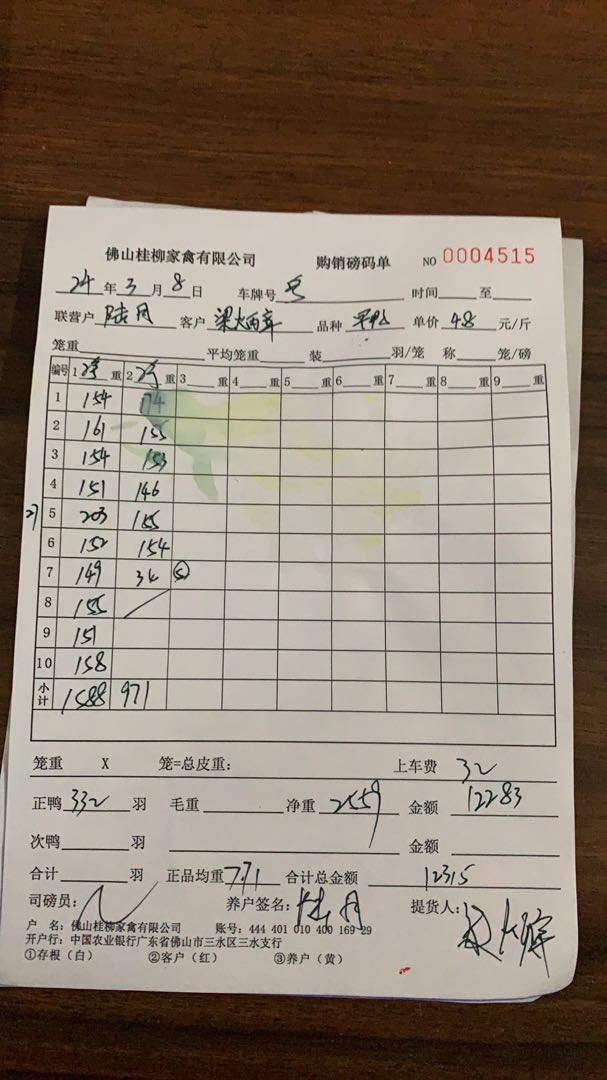 佛山桂柳家禽有限公司 购销磅码单 NO 0004515
24 年 3 月 8 日 车牌号 时间 至
联营户 陆月 客户 品种 单价 4.8 元/斤
笼重 平均笼重 装 羽/笼 称 笼/磅
编号 1 净 重 2 净 重 3 重 4 重 5 重 6 重 7 重 8 重 9 重
1 154 174
2 161 155
3 154 153
4 151 146
27 5 203 155
6 152 154
7 149 34 ⑤
8 155
9 151
10 158
小计 1588 971
笼重 X 笼=总皮重: 上车费 32
正鸭 332 羽 毛重 净重 2559 金额 12283
次鸭 羽 金额
合计 羽 正品均重 7.71 合计总金额 12315
司磅员: 养户签名: 陆月 提货人:
户 名: 佛山桂柳家禽有限公司 账号: 444 401 010 400 169 29
开户行: 中国农业银行广东省佛山市三水区三水支行
①存根（白） ②客户（红） ③养户（黄）